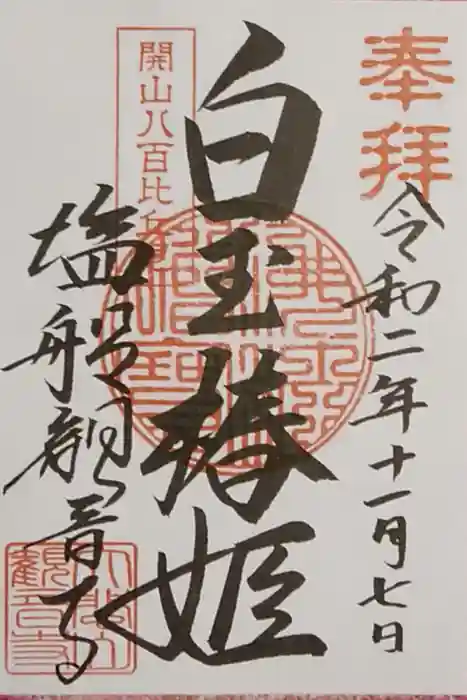 奉拝
令和二年十一月七日
白玉椿姫
開山八百比丘尼
塩船観音寺